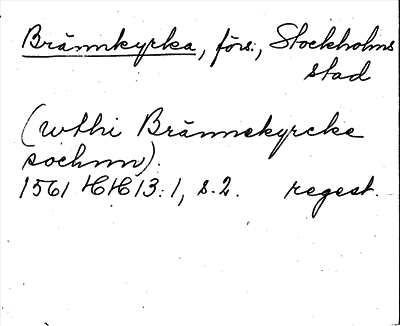 Brännkyrka, förs., Stockholms
stad
(wthi Brännekyrcke
sochnn).
1561 HH 13:1, s. 2. regest.